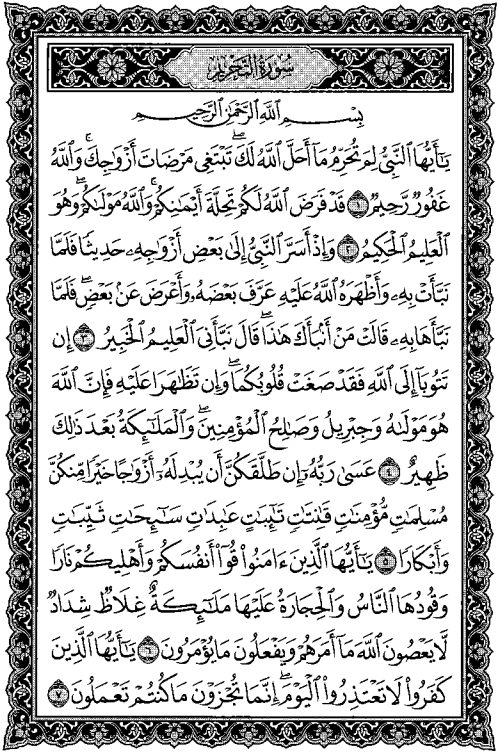 سُورَةُ التَّحْرِيمِ
بِسْمِ اللَّهِ الرَّحْمَٰنِ الرَّحِيمِ
يَٰٓأَيُّهَا ٱلنَّبِيُّ لِمَ تُحَرِّمُ مَآ أَحَلَّ ٱللَّهُ لَكَۖ تَبْتَغِي مَرْضَاتَ أَزْوَٰجِكَۚ وَٱللَّهُ
غَفُورٌ رَّحِيمٌ ١ قَدْ فَرَضَ ٱللَّهُ لَكُمْ تَحِلَّةَ أَيْمَٰنِكُمْۚ وَٱللَّهُ مَوْلَىٰكُمْۖ وَهُوَ
ٱلْعَلِيمُ ٱلْحَكِيمُ ٢ وَإِذْ أَسَرَّ ٱلنَّبِيُّ إِلَىٰ بَعْضِ أَزْوَٰجِهِۦ حَدِيثًا فَلَمَّا
نَبَّأَتْ بِهِۦ وَأَظْهَرَهُ ٱللَّهُ عَلَيْهِ عَرَّفَ بَعْضَهُۥ وَأَعْرَضَ عَنۢ بَعْضٍۖ فَلَمَّا
نَبَّأَهَا بِهِۦ قَالَتْ مَنْ أَنۢبَأَكَ هَٰذَاۖ قَالَ نَبَّأَنِيَ ٱلْعَلِيمُ ٱلْخَبِيرُ ٣ إِن
تَتُوبَآ إِلَى ٱللَّهِ فَقَدْ صَغَتْ قُلُوبُكُمَاۖ وَإِن تَظَٰهَرَا عَلَيْهِ فَإِنَّ ٱللَّهَ
هُوَ مَوْلَىٰهُ وَجِبْرِيلُ وَصَٰلِحُ ٱلْمُؤْمِنِينَۖ وَٱلْمَلَٰٓئِكَةُ بَعْدَ ذَٰلِكَ
ظَهِيرٌ ٤ عَسَىٰ رَبُّهُۥٓ إِن طَلَّقَكُنَّ أَن يُبْدِلَهُۥٓ أَزْوَٰجًا خَيْرًا مِّنكُنَّ
مُسْلِمَٰتٍ مُّؤْمِنَٰتٍ قَٰنِتَٰتٍ تَٰٓئِبَٰتٍ عَٰبِدَٰتٍ سَٰٓئِحَٰتٍ ثَيِّبَٰتٍ
وَأَبْكَارًا ٥ يَٰٓأَيُّهَا ٱلَّذِينَ ءَامَنُوا۟ قُوٓا۟ أَنفُسَكُمْ وَأَهْلِيكُمْ نَارًا
وَقُودُهَا ٱلنَّاسُ وَٱلْحِجَارَةُ عَلَيْهَا مَلَٰٓئِكَةٌ غِلَاظٌ شِدَادٌ
لَّا يَعْصُونَ ٱللَّهَ مَآ أَمَرَهُمْ وَيَفْعَلُونَ مَا يُؤْمَرُونَ ٦ يَٰٓأَيُّهَا ٱلَّذِينَ
كَفَرُوا۟ لَا تَعْتَذِرُوا۟ ٱلْيَوْمَۖ إِنَّمَا تُجْزَوْنَ مَا كُنتُمْ تَعْمَلُونَ ٧